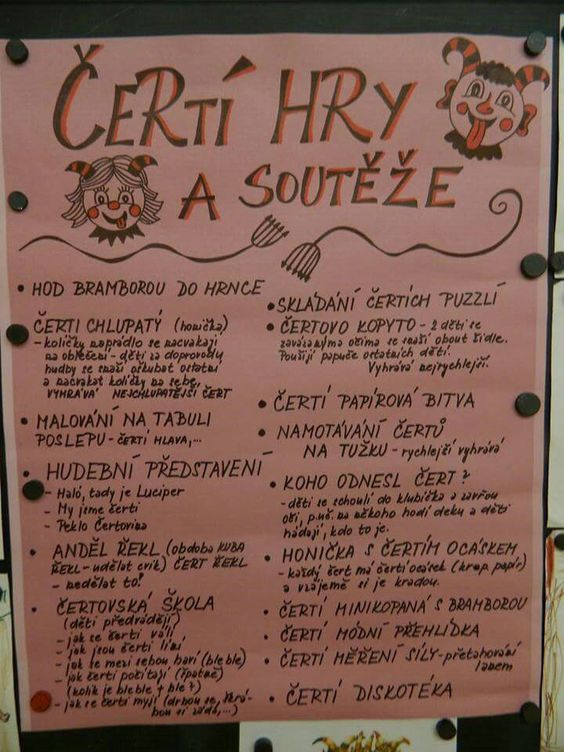 ČERTÍ HRY
A SOUTĚŽE
• HOD BRAMBOROU DO HRNCE
ČERTI CHLUPATÝ (honička)
- količky na prádlo se nacvakají
na oblečení - děti za doprovodu
hudby se snaží oškubat ostatní
a nacvakat količky na sebe,
VYHRÁVÁ NEJCHLUPATĚJŠÍ ČERT
• MALOVÁNÍ NA TABULI
POSLEPU - ČERTÍ HLAVA,...
• HUDEBNÍ PŘEDSTAVENÍ
- Haló, tady je Luciper
- My jsme čerti
- Peklo Čertovina
• ANDĚL ŘEKL (obdoba KUBA
ŘEKL - udělat cvik) ČERT ŘEKL
- nedělat to!
• ČERTOVSKÁ ŠKOLA
(děti předvádějí)
- jak se čerti válí,
- jak jsou čerti líní
- jak se mezi sebou baví (ble ble)
- jak čerti počítají (špatně)
(kolik je ble ble + ble?)
- jak se čerti myjí (drbou se, škrá-
bou si záda,...)
• SKLÁDÁNÍ ČERTÍCH PUZZLÍ
• ČERTOVO KOPYTO - 2 děti se
zavázanýma očima se snaží obout židle.
Použijí papuče ostatních dětí.
Vyhrává nejrychlejší.
• ČERTÍ PAPÍROVÁ BITVA
• NAMOTÁVÁNÍ ČERTŮ
NA TUŽKU - rychlejší vyhrává
• KOHO ODNESL ČERT?
- děti se schoulí do klubíčka a zavřou
oči, p.uč. na někoho hodí deku a děti
hádají, kdo to je.
• HONIČKA S ČERTÍM OCÁSKEM
- každý čert má čertí ocásek (krep. papír)
a vzájemě si je kradou.
• ČERTÍ MINIKOPANÁ S BRAMBOROU
• ČERTÍ MÓDNÍ PŘEHLÍDKA
• ČERTÍ MĚŘENÍ SÍLY - přetahování
lanem
• ČERTÍ DISKOTÉKA